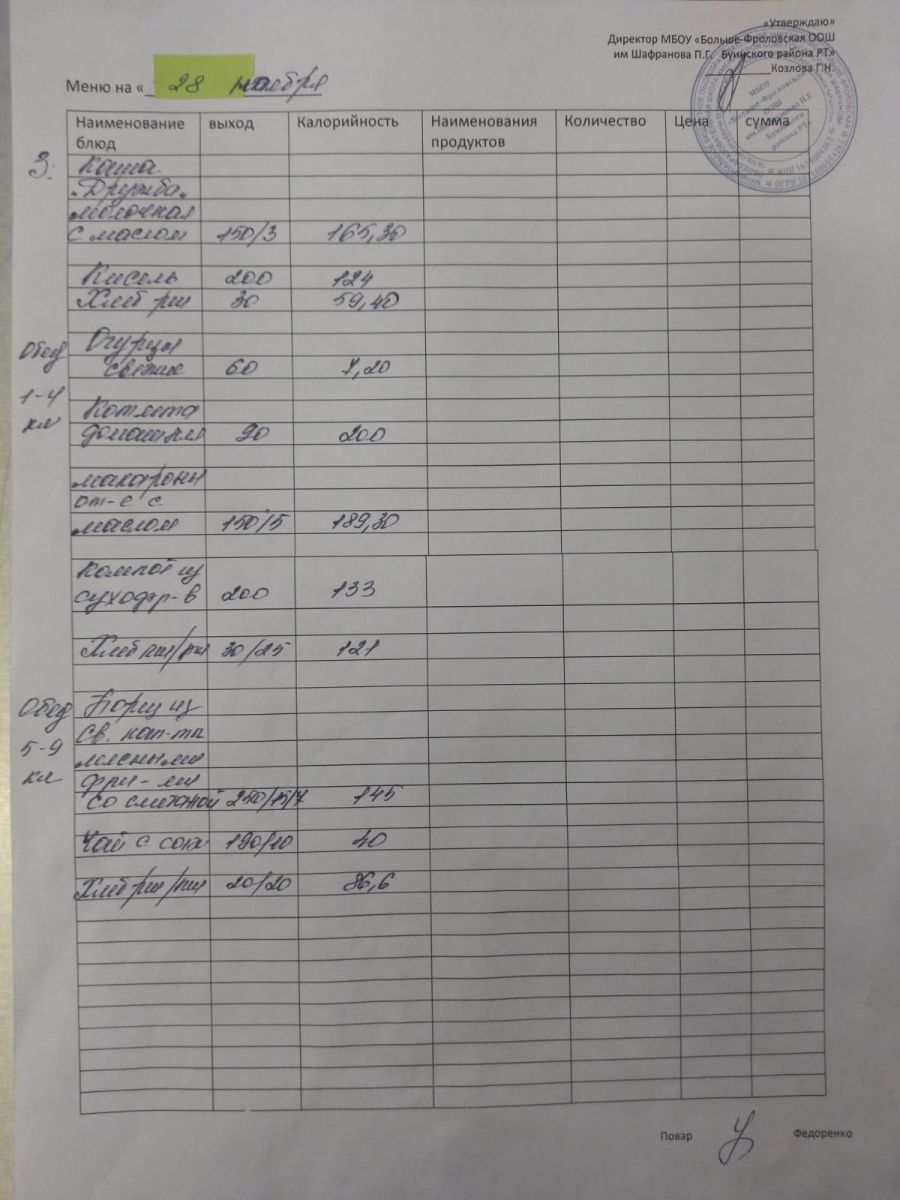 «Утверждаю»
Директор МБОУ «Больше-Фроловская ООШ
им Шафранова П.Г. Буинского района РТ»
Козлова Г.Н.
Меню на «_ 28 ноября
Наименование блюд выход Калорийность Наименования продуктов Количество Цена сумма
З.
Каша
"Дружба"
молочная
с маслом 150/3 165,30
Кисель 200 124
Хлеб пш 30 59,40
Обед
1-4
кл
Огурцы
свежие 60 7,20
Котлета
домашняя 90 200
макароны
от-е с
маслом 150/5 189,30
Компот из
сухофр-в 200 133
Хлеб пш/рж 30/25 121
Обед
5-9
кл
Борщ из
св. кап-ты
мясными
фри-ми
со сметаной 250/15/7 145
Чай с сах 190/10 40
Хлеб рж/пш 20/20 86,6
Повар Федоренко
МБОУ
«Больше-Фроловская
ООШ
им.Шафранова П.Г.
Буинского
района РТ»